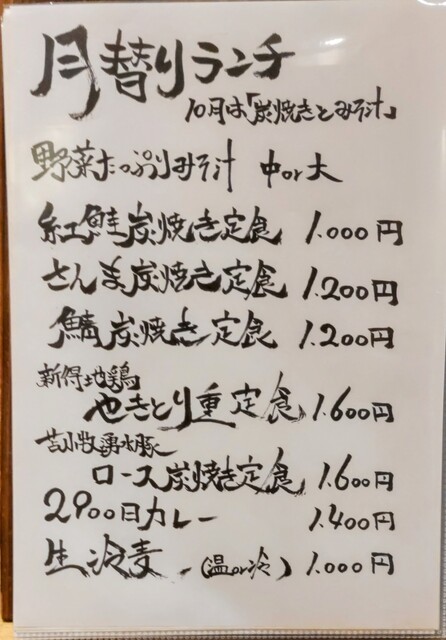 月替りランチ
10月は「炭焼きとみそ汁」
野菜たっぷりみそ汁 中or大
紅鮭炭焼き定食 1.000円
さんま炭焼き定食 1.200円
鯖炭焼き定食 1.200円
新得地鶏
やきとり重定食 1.600円
苫小牧勇払豚
ロース炭焼き定食 1.600円
2900日カレー 1.400円
生冷麦 (温or冷) 1.000円